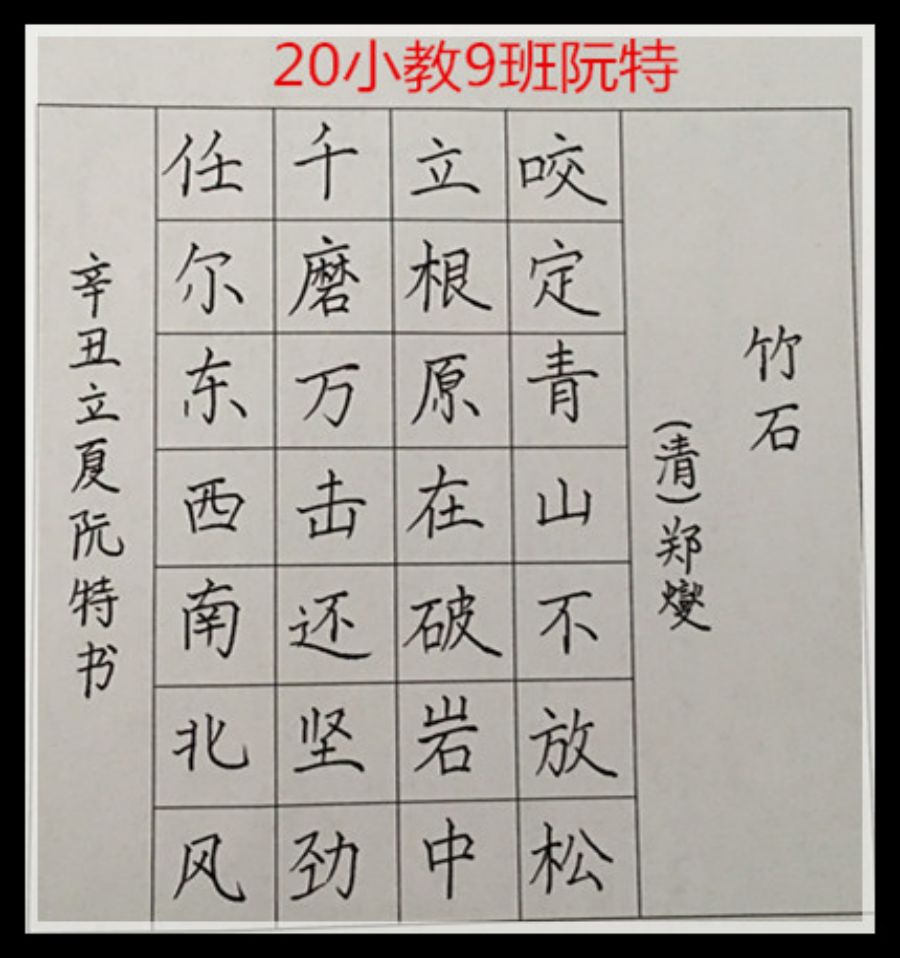 20小教9班阮特
竹石
(清)郑燮
咬定青山不放松
立根原在破岩中
千磨万击还坚劲
任尔东西南北风
辛丑立夏阮特书